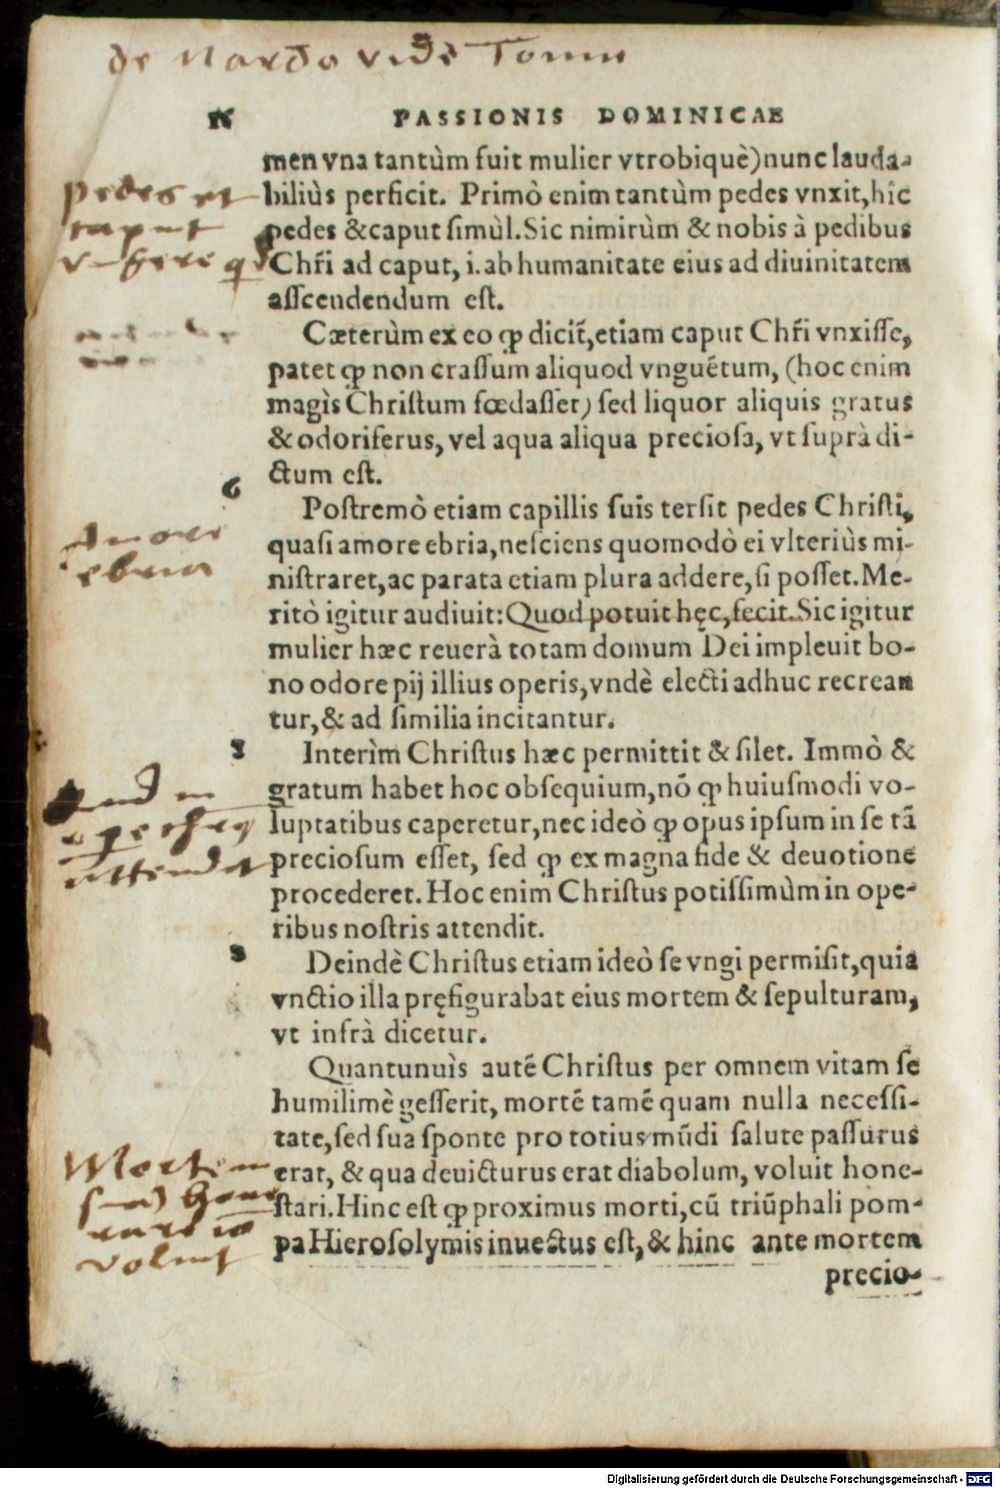 de Nardo vide Tomu
PASSIONIS DOMINICAE
men vna tantùm fuit mulier vtrobiquè) nunc lauda-
biliùs perficit. Primò enim tantùm pedes vnxit, hîc
pedes & caput simùl. Sic nimirùm & nobis à pedibus
Chr̃i ad caput, i. ab humanitate eius ad diuinitatem
asscendendum est.
Cæterùm ex eo ꝙ dicit̃, etiam caput Chr̃i vnxisse,
patet ꝙ non crassum aliquod vnguẽtum, (hoc enim
magìs Christum fœdasset) sed liquor aliquis gratus
& odoriferus, vel aqua aliqua preciosa, vt suprà di-
ctum est.
Postremò etiam capillis suis tersit pedes Christi,
quasi amore ebria, nesciens quomodò ei vlteriùs mi-
nistraret, ac parata etiam plura addere, si posset. Me-
ritò igitur audiuit: Quod potuit hęc, fecit. Sic igitur
mulier hæc reuerà totam domum Dei impleuit bo-
no odore pij illius operis, vndè electi adhuc recrean
tur, & ad similia incitantur.
Interìm Christus hæc permittit & silet. Immò &
gratum habet hoc obsequium, nõ ꝙ huiusmodi vo-
luptatibus caperetur, nec ideò ꝙ opus ipsum in se tã
preciosum esset, sed ꝙ ex magna fide & deuotione
procederet. Hoc enim Christus potissimùm in ope-
ribus nostris attendit.
Deindè Christus etiam ideò se vngi permisit, quia
vnctio illa pręfigurabat eius mortem & sepulturam,
vt infrà dicetur.
Quantunuìs autẽ Christus per omnem vitam se
humilimè gesserit, mortẽ tamẽ quam nulla necessi-
tate, sed sua sponte pro totius mũdi salute passurus
erat, & qua deuicturus erat diabolum, voluit hone-
stari. Hinc est ꝙ proximus morti, cũ triũphali pom-
pa Hierosolymis inuectus est, & hinc ante mortem
precio-
pedes et
caput
6
Amore
ebria
attendit
Mortem
suam
voluit
Digitalisierung gefördert durch die Deutsche Forschungsgemeinschaft - DFG